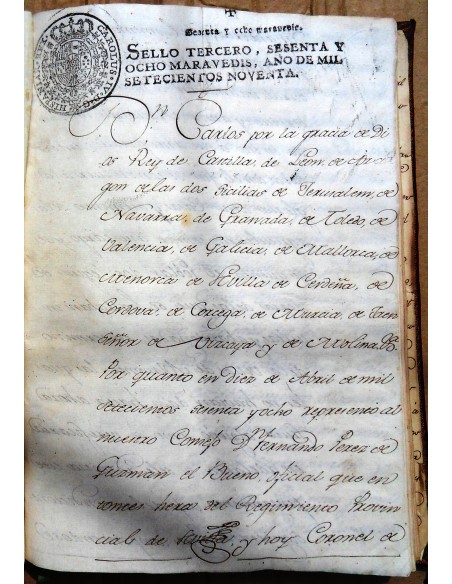 Sesenta y ocho maravedis.
SELLO TERCERO, SESENTA Y
OCHO MARAVEDIS, AÑO DE MIL
SETECIENTOS NOVENTA.
CAROLUS IV D G HISPANIAR REX
Dn. Carlos por la gracia de Di
os Rey de Castilla, de Leon, de Ara
gon de las dos Sicilias de Jerusalem, de
Navarra, de Granada, de Toledo, de
Valencia, de Galicia, de Mallorca, de
Menorca de Sevilla de Cerdeña, de
Cordova, de Corcega, de Murcia, de Jaen
Señor de Vizcaya y de Molina &a
Por quanto en diez de Abril de mil
setecientos setenta y ocho represento al
nuestro Consejo Dn. Fernando Perez de
Guzman el Bueno, oficial que en
tonces hera del Regimiento Provin
cial de Sevilla, y hoy Coronel de